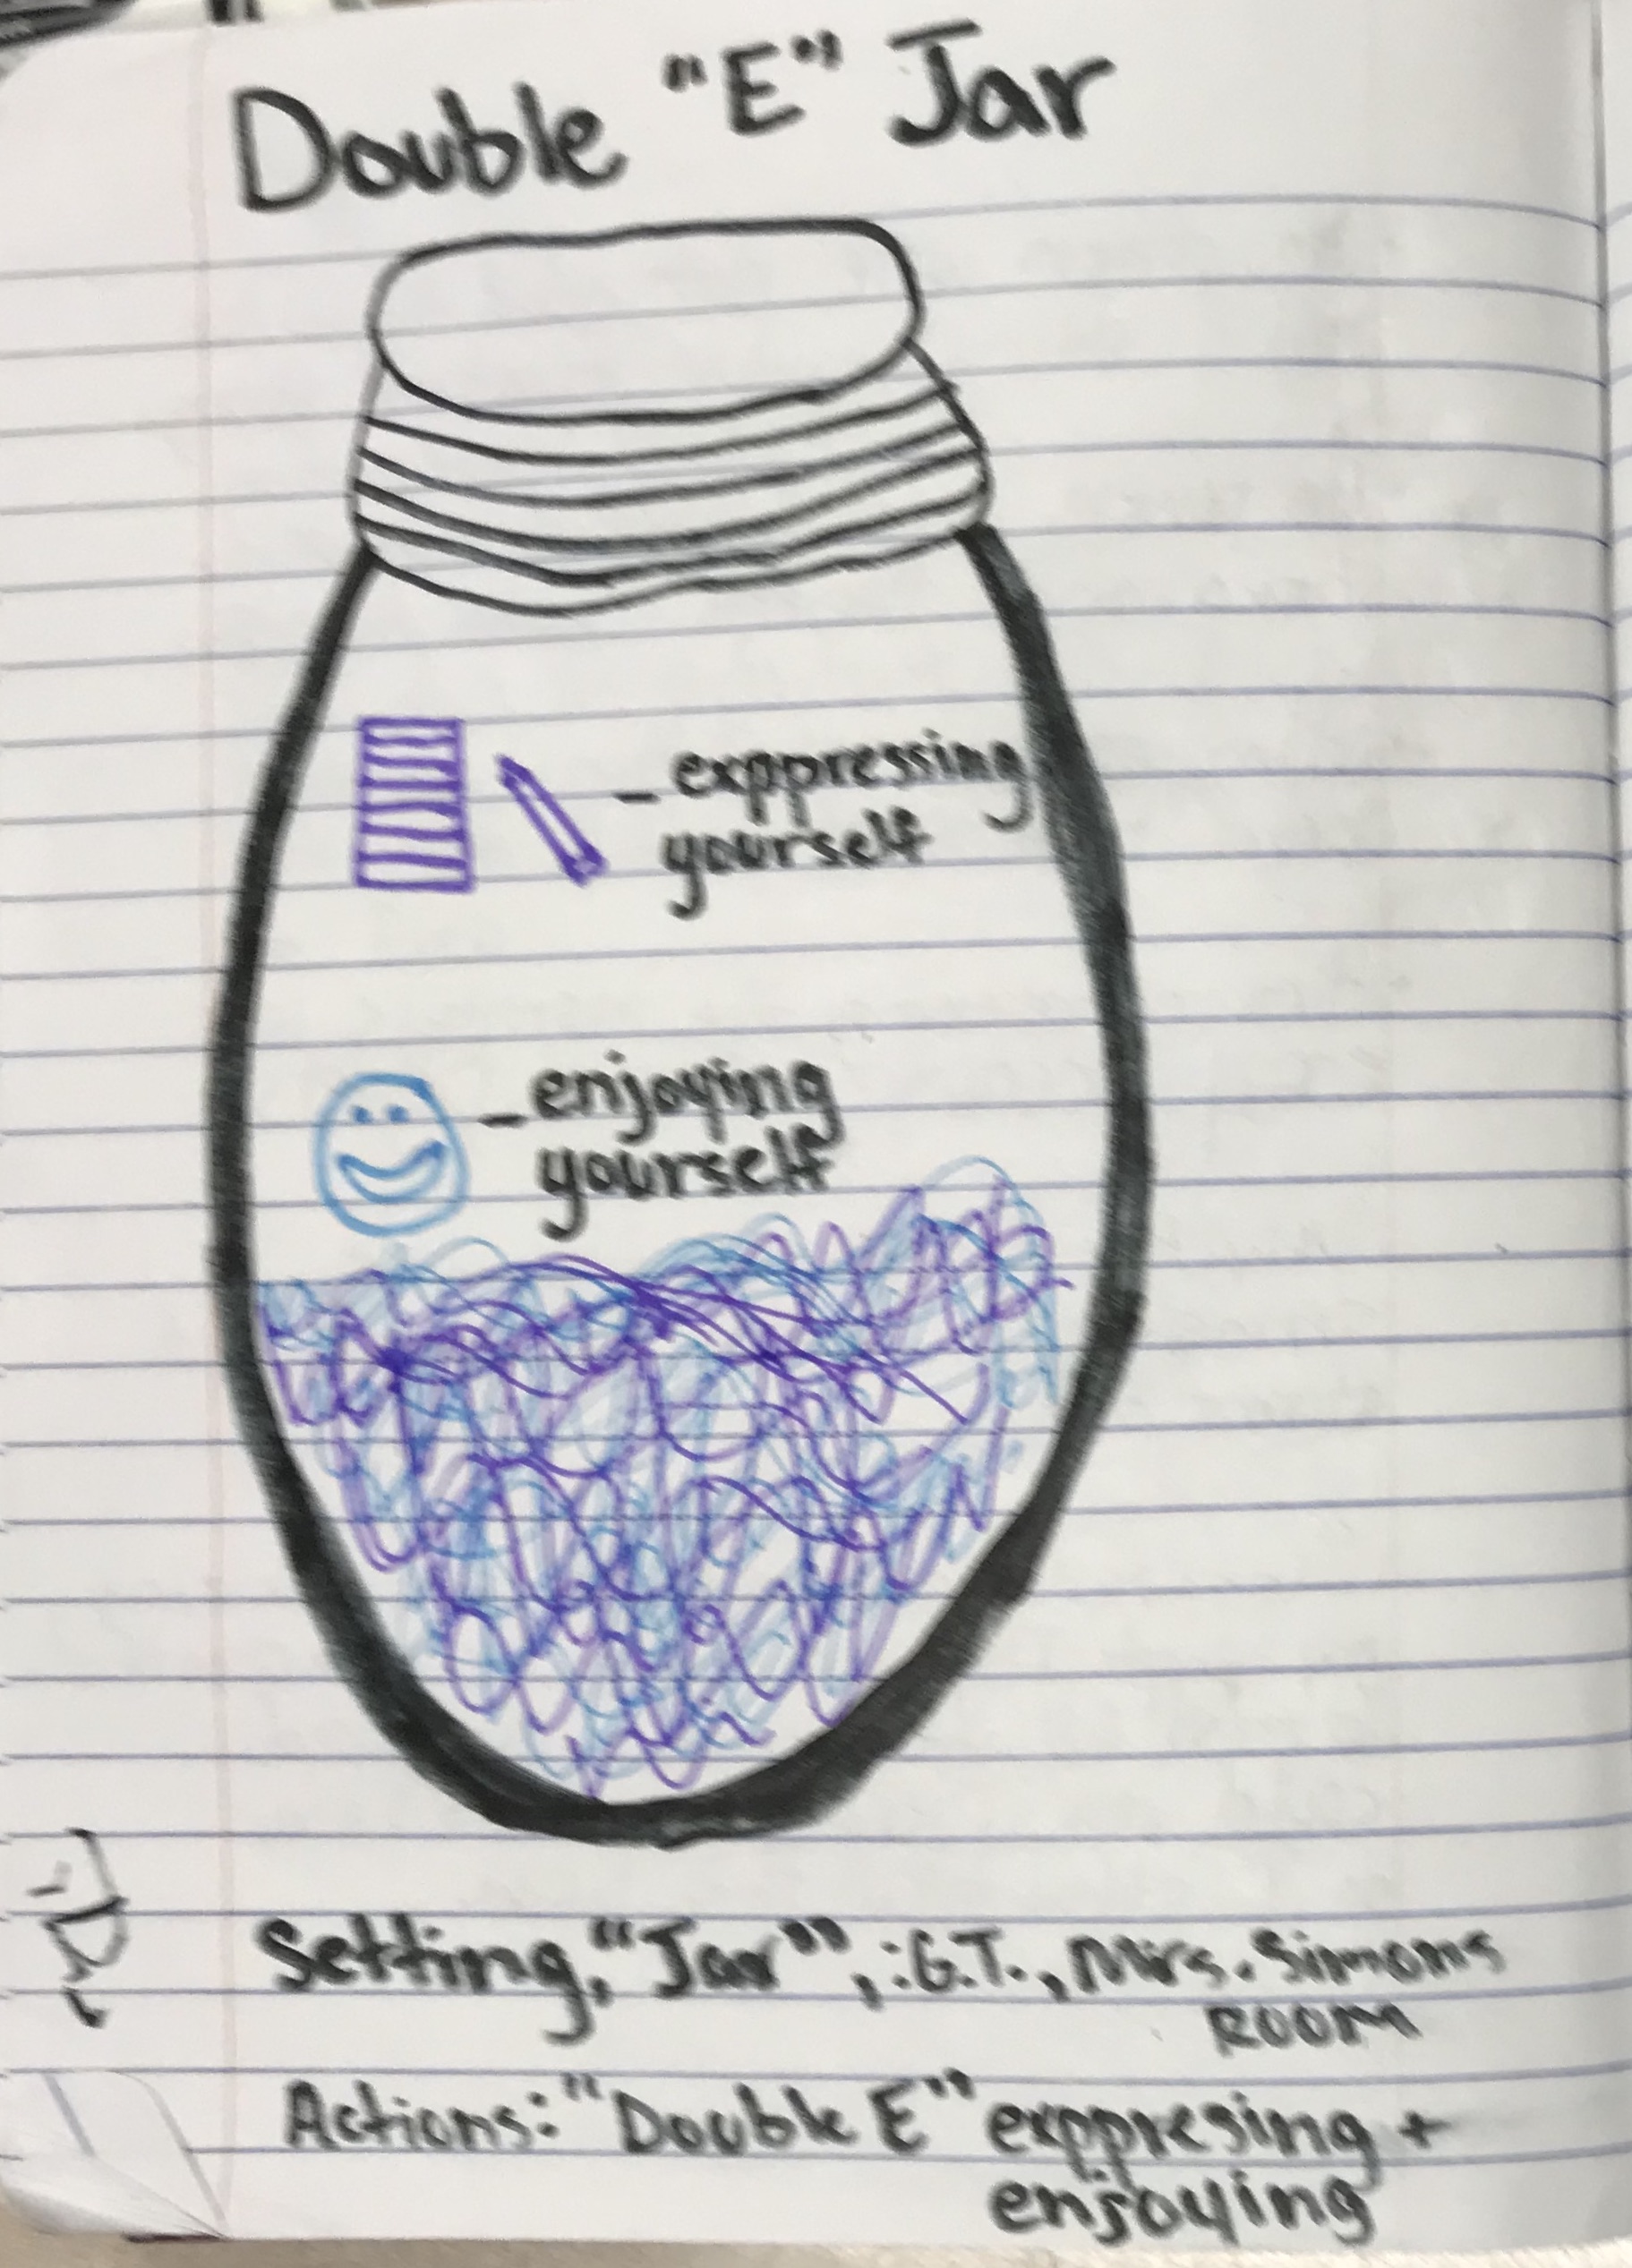 Double "E" Jar
- exppressing
yourself
- enjoying
yourself
Setting, "Jar", : G.T., Mrs. Simons
Room
Actions: "Double E" exppresing +
enjoying